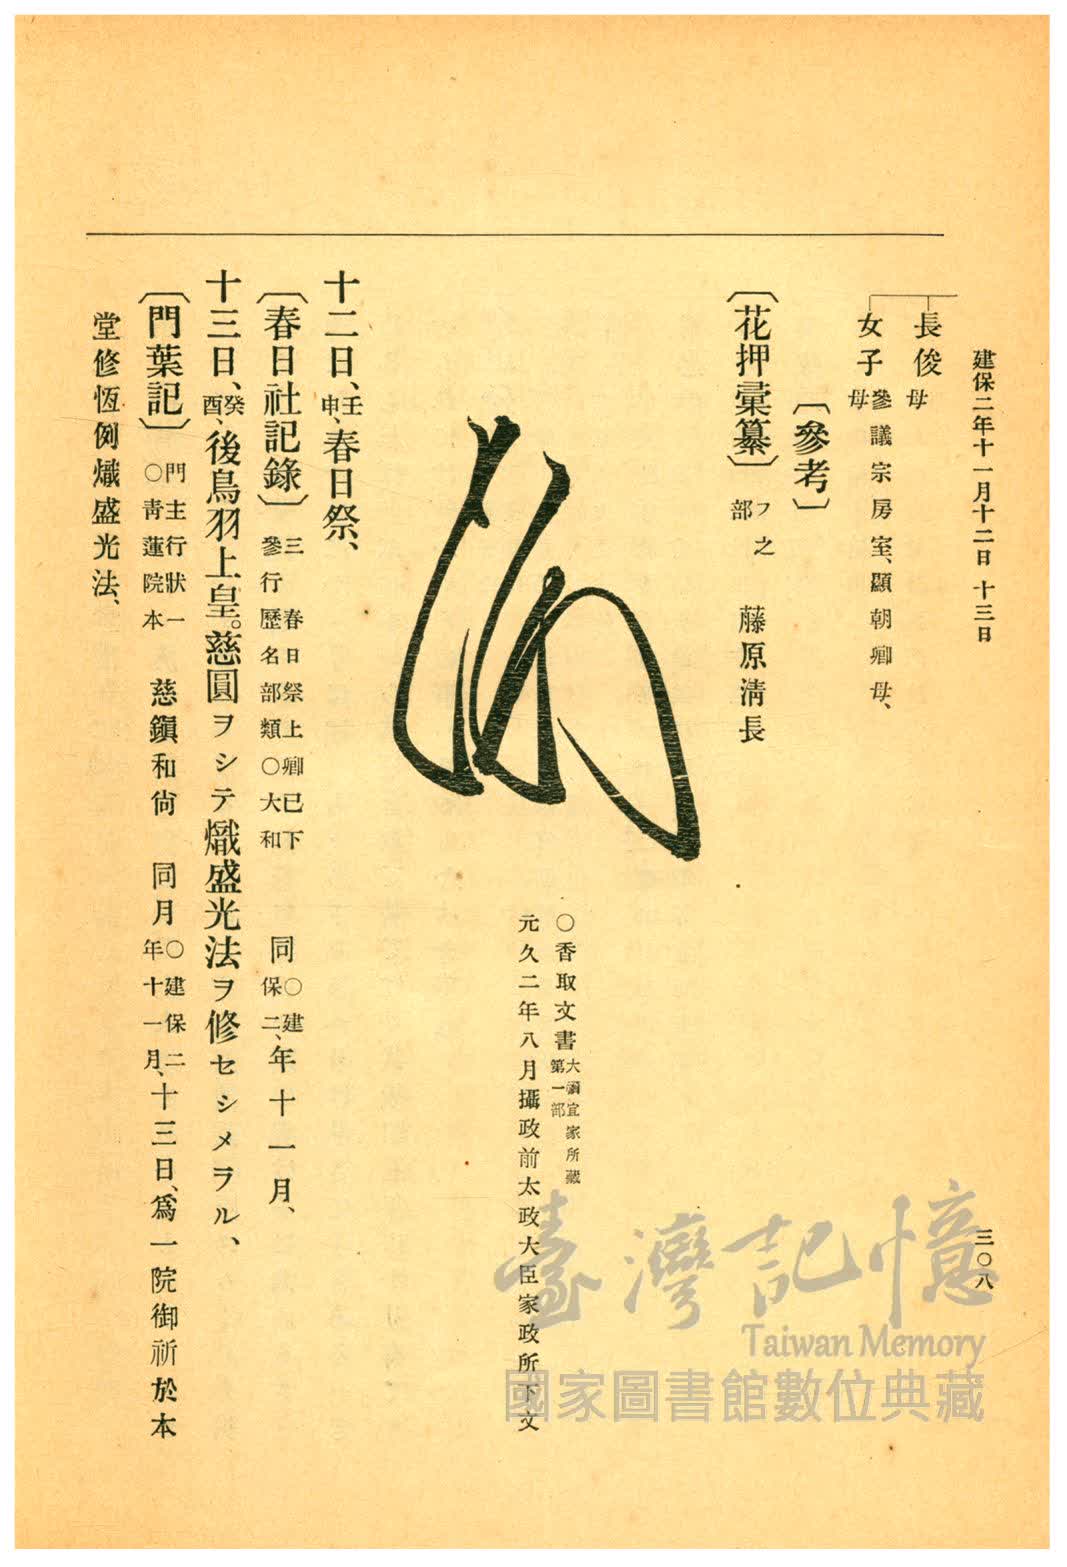 建保二年十一月十二日 十三日
三〇八
長俊 母
女子 參議宗房室、顯朝卿母、
母
〔參考〕
〔花押彙纂〕 フ之部 藤原淸長
〇香取文書 大禰宜家所藏 第一部
元久二年八月攝政前太政大臣家政所下文
十二日、壬申、春日祭、
〔春日社記錄〕 三 春日祭上卿已下參行歷名部類〇大和 同〇建保二、年十一月、
十三日、癸酉、後鳥羽上皇。慈圓ヲシテ熾盛光法ヲ修セシメラル、
〔門葉記〕 門主行狀一〇靑蓮院本 慈鎭和尙 同月〇建保二年十一月、十三日、爲一院御祈於本
堂修恆例熾盛光法、
臺灣記憶
Taiwan Memory
國家圖書館數位典藏